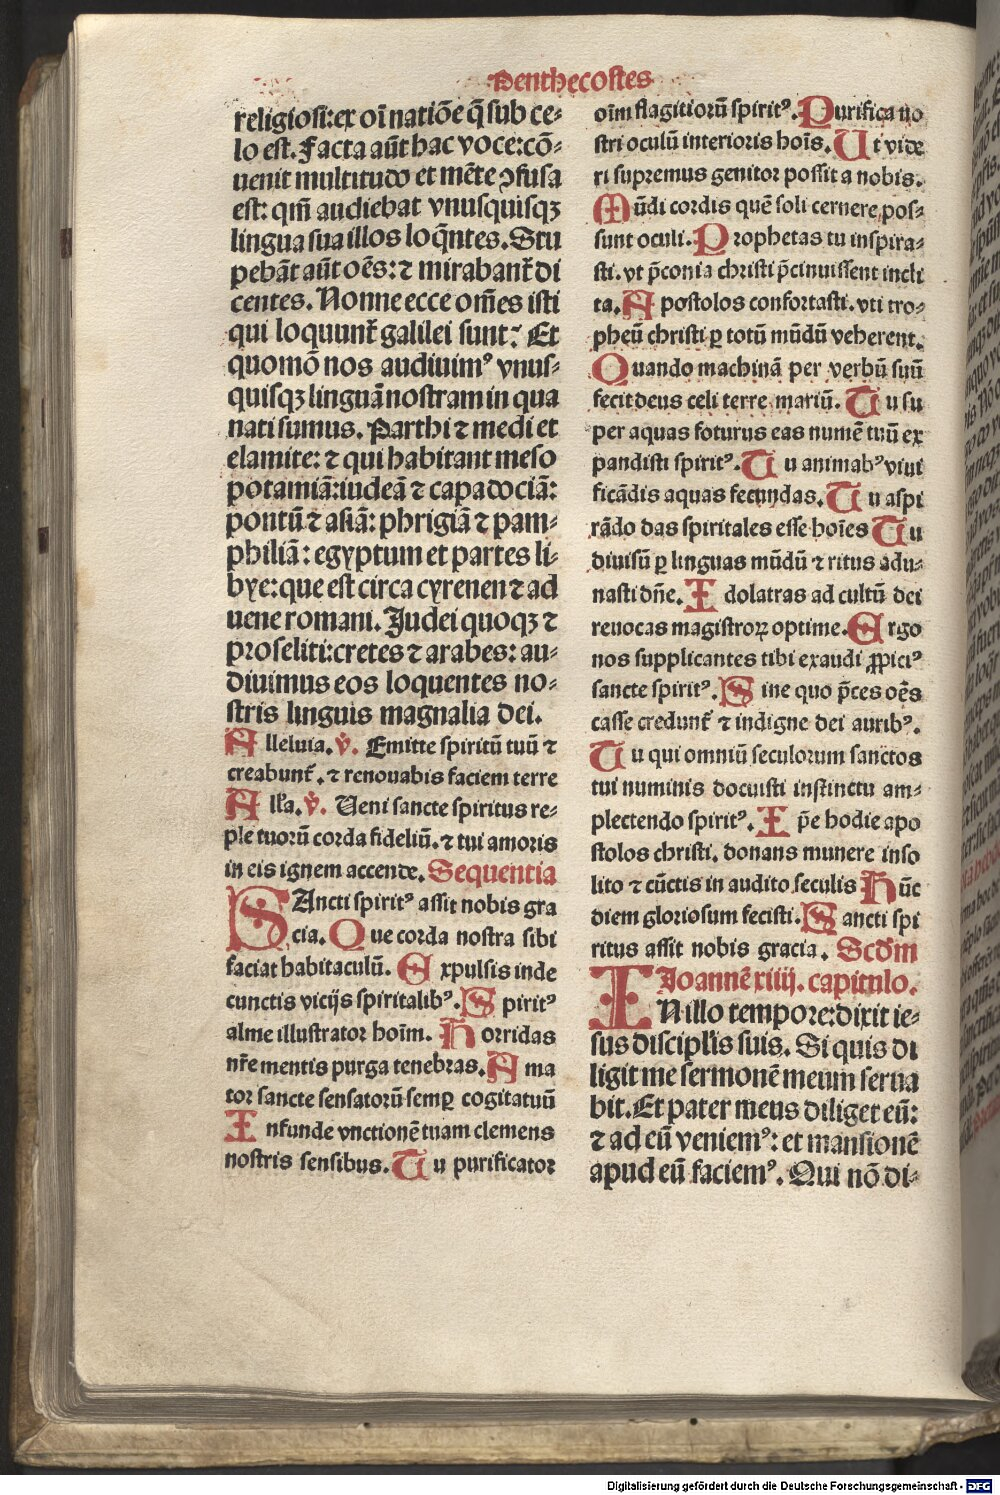 Penthecostes
religiosi:ex oı̄ natiōe q̄ sub ce⸗
lo est. Facta aūt hac voce:cō⸗
uenit multitudo et mēte ꝯfusa
est: qm̄ audiebat vnusquisqꝫ
lingua sua illos loq̄ntes. Stu
pebāt aūt oēs: ⁊ mirabant᷑ di
centes. Nonne ecce om̄es isti
qui loquunt᷑ galilei sunt? Et
quomō nos audiuimꝰ vnus⸗
quisqꝫ linguā nostram in qua
nati sumus. Parthi ⁊ medi et
elamite: ⁊ qui habitant meso
potamiā:iudeā ⁊ capadociā:
pontū ⁊ asiā: phrigiā ⁊ pam⸗
philiā: egyptum et partes li⸗
bye: que est circa cyrenen ⁊ ad
uene romani. Judei quoqꝫ ⁊
proseliti:cretes ⁊ arabes: au⸗
diuimus eos loquentes no⸗
stris linguis magnalia dei.
Alleluia. v̄. Emitte spiritū tuū ⁊
creabunt᷑. ⁊ renouabis faciem terre
All'a. v̄. Ueni sancte spiritus re⸗
ple tuorū corda fideliū. ⁊ tui amoris
in eis ignem accende. Sequentia
SAncti spiritꝰ assit nobis gra
cia. Que corda nostra sibi
faciat habitaculū. Expulsis inde
cunctis vicijs spiritalibꝰ. Spiritꝰ
alme illustrator hoı̄m. Horridas
nr̄e mentis purga tenebras. Ama
tor sancte sensatorū semꝑ cogitatuū
Infunde vnctionē tuam clemens
nostris sensibus. Tu purificator
oı̄m flagitiorū spiritꝰ. Purifica no
stri oculū interioris hoı̄s. Ut vide
ri supremus genitor possit a nobis.
Mūdi cordis quē soli cernere pos⸗
sunt oculi. Prophetas tu inspira⸗
sti. vt p̄conia christi p̄cinuissent incli
ta. Apostolos confortasti. vti tro⸗
pheū christi ꝑ totū mūdū veherent.
Quando machinā per verbū suū
fecit deus celi terre mariū. Tu su
per aquas foturus eas numē tuū ex
pandisti spiritꝰ. Tu animabꝰ viui
ficādis aquas fecundas. Tu aspi
rādo das spiritales esse hoı̄es Tu
diuisū ꝑ linguas mūdū ⁊ ritus adu⸗
nasti dn̄e. Idolatras ad cultū dei
reuocas magistroꝝ optime. Ergo
nos supplicantes tibi exaudi ꝓpiciꝰ
sancte spiritꝰ. Sine quo p̄ces oēs
casse credunt᷑ ⁊ indigne dei auribꝰ.
Tu qui omniū seculorum sanctos
tui numinis docuisti instinctu am⸗
plectendo spiritꝰ. Ip̄e hodie apo
stolos christi. donans munere inso
lito ⁊ cūctis in audito seculis Hūc
diem gloriosum fecisti. Sancti spi
ritus assit nobis gracia. Scdm̄
Joannē xiiij. capitulo.
IN illo tempore: dixit ie⸗
sus discipl̄is suis. Si quis di
ligit me sermonē meum serua
bit. Et pater meus diliget eū:
⁊ ad eū veniemꝰ: et mansionē
apud eū faciemꝰ. Qui nō di⸗
Digitalisierung gefördert durch die Deutsche Forschungsgemeinschaft - DFG